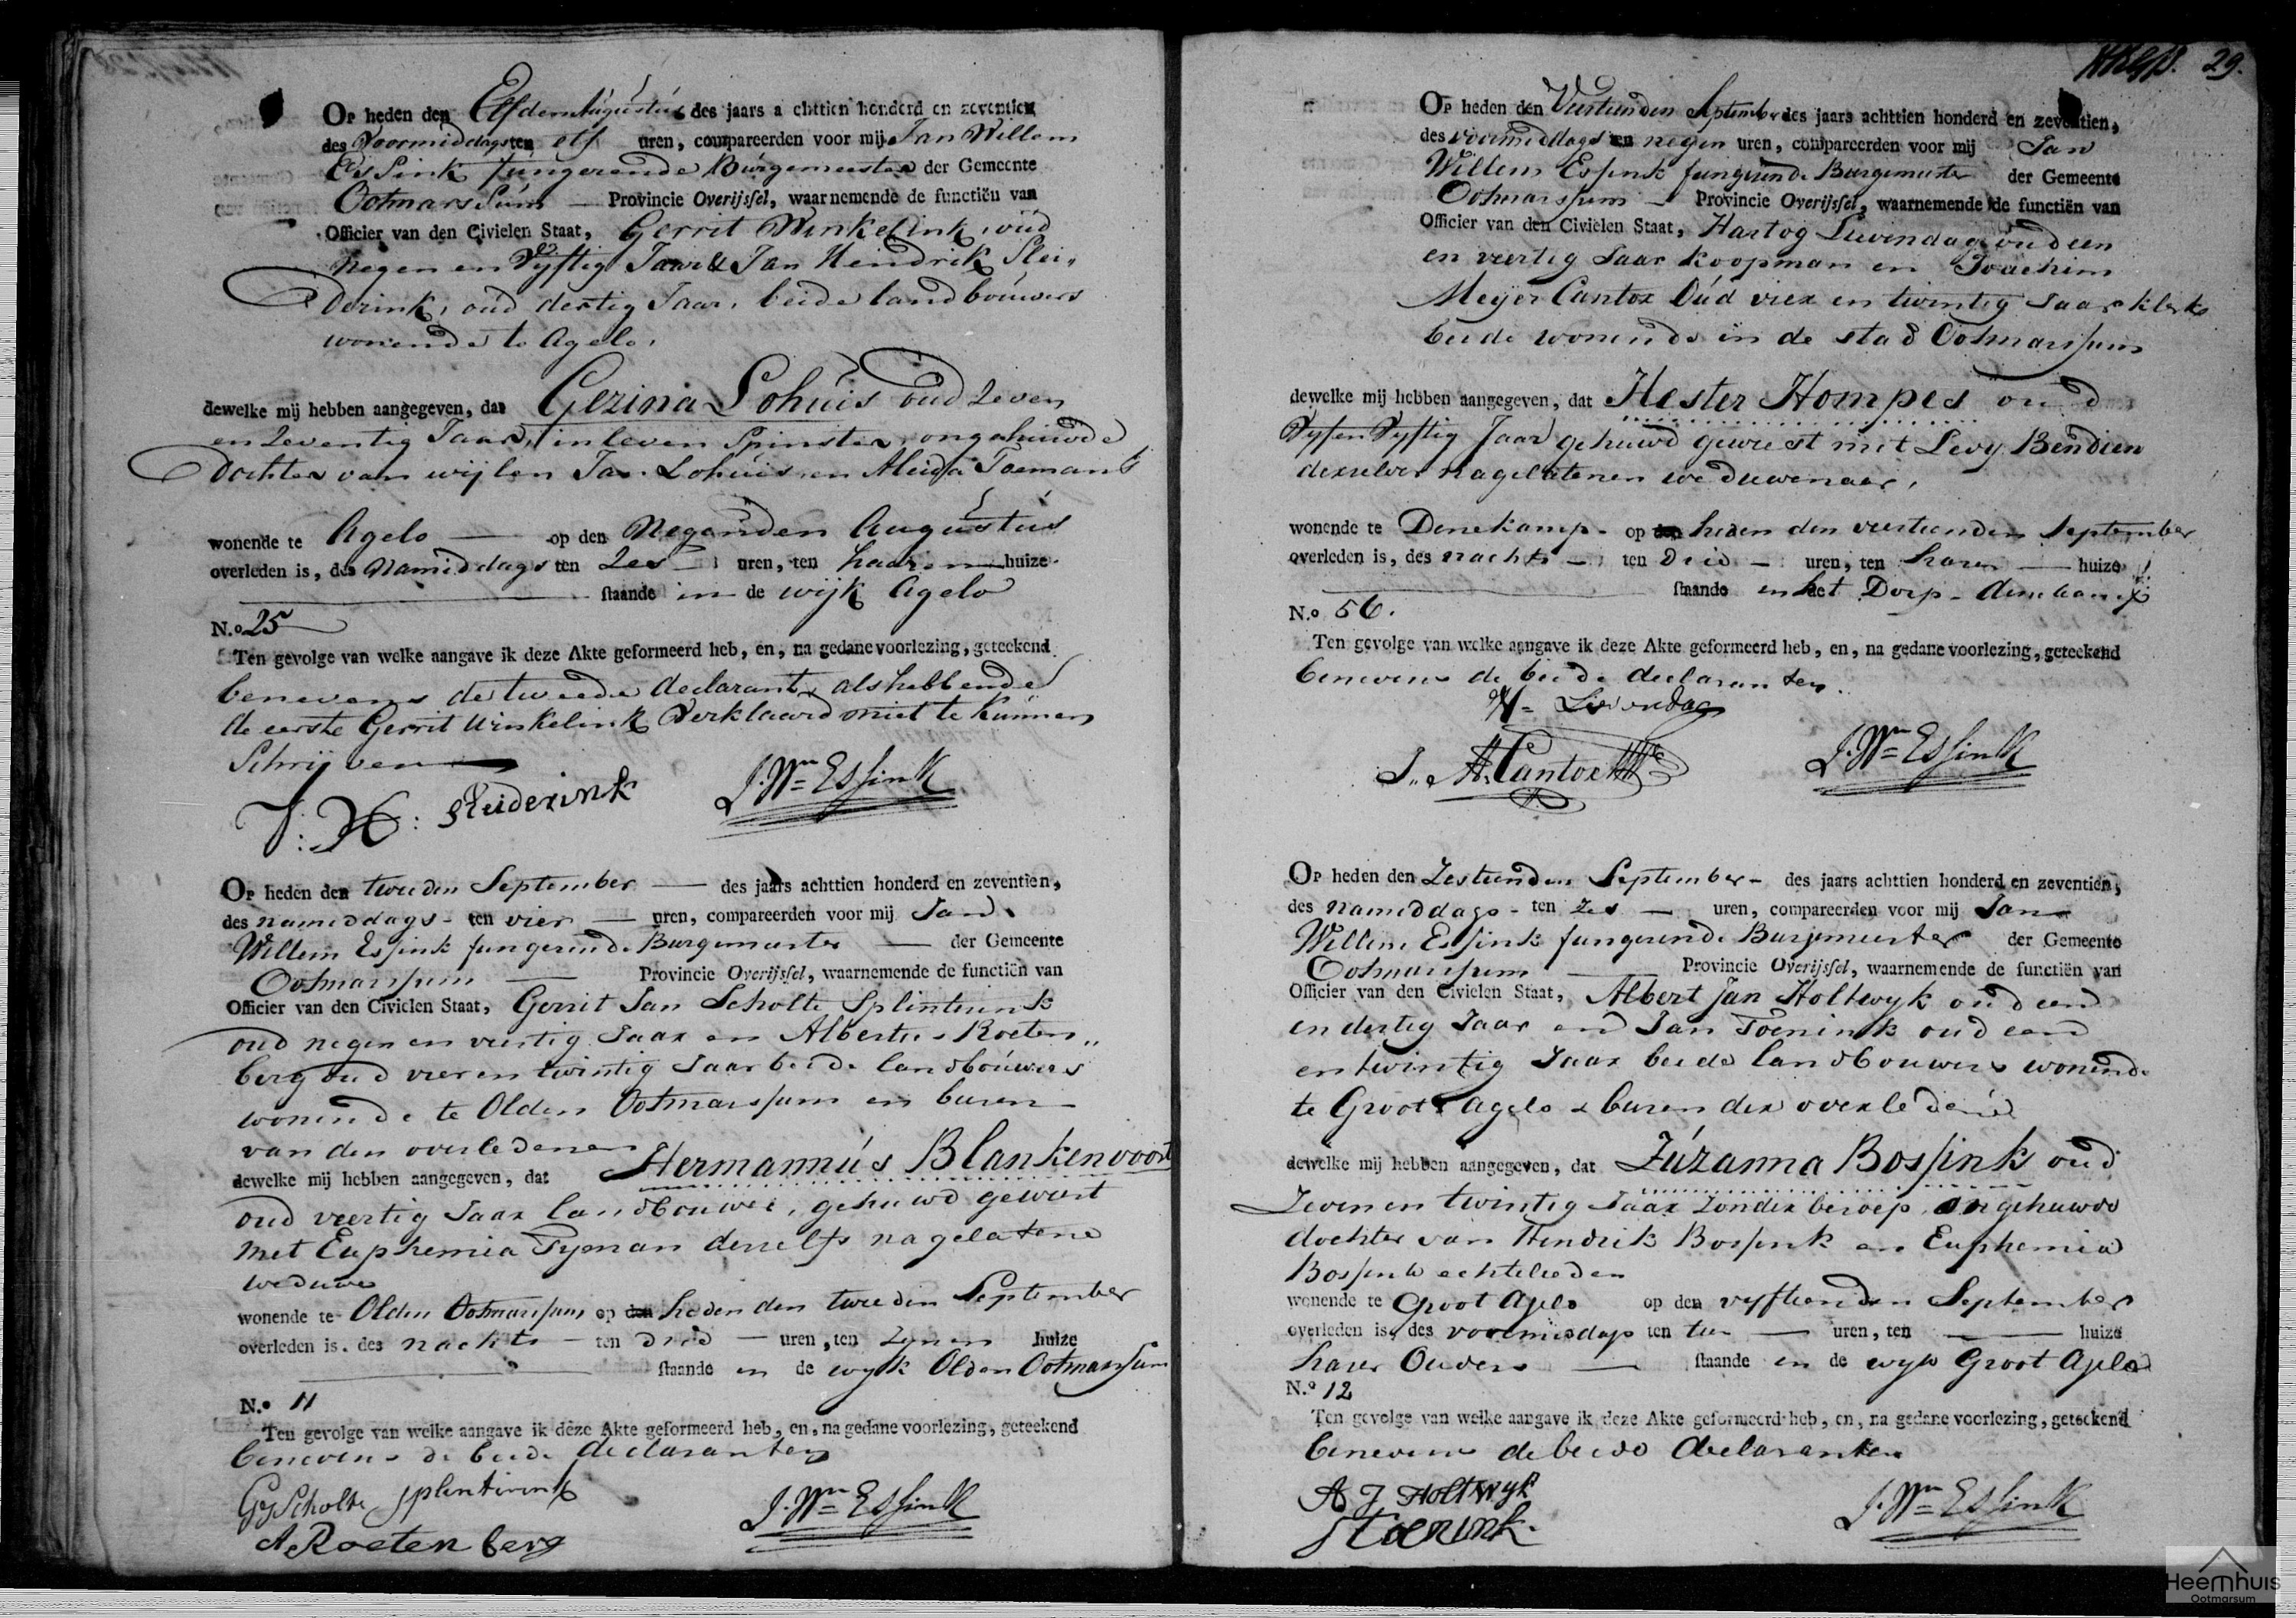 Op heden den Elfden Augustus des jaars achttien honderd en zeventien
des Voormiddags ten elf uren, compareerden voor mij Jan Willem
Essink fungerende Burgemeester der Gemeente
Ootmarssum Provincie Overijssel, waarnemende de functiën van
Officier van den Civielen Staat, Gerrit Winkelink, oud
negen en Vyftig Jaar & Jan Hendrik Slei„
derink, oud dertig Jaar, beide landbouwers
wonende te Agelo.
dewelke mij hebben aangegeven, dat Gezina Lohuis oud zeven
en zeventig Jaar, in leven Spinster, ongehuwde
Dochter van wijlen Jan Lohuis en Aleida Toeman
wonende te Agelo op den Negenden Augustus
overleden is, des Namiddags ten zes uren, ten haaren huize
staande in de wijk Agelo
N.o 25
Ten gevolge van welke aangave ik deze Akte geformeerd heb, en, na gedane voorlezing, geteekend
benevens de tweede declarant, als hebbende
de eerste Gerrit Winkelink Verklaard niet te kunnen
Schrijven
J: H: Sleiderink J. Wm Essink
Op heden den tweeden September des jaars achttien honderd en zeventien,
des namiddags ten vier uren, compareerden voor mij Jan
Willem Essink fungerende Burgemeester der Gemeente
Ootmarssum Provincie Overijssel, waarnemende de functiën van
Officier van den Civielen Staat, Gerrit Jan Scholte Splinterink
oud negen en veertig Jaar en Albertus Roeten„
berg oud vier en twintig Jaar beide landbouwers
wonende te Olden Ootmarssum en buren
van den overledenen
dewelke mij hebben aangegeven, dat Hermannus Blankenvoort
oud veertig Jaar landbouwer, gehuwd geweest
met Euphemia Tyman deszelfs nagelatene
weduwe
wonende te Olden Ootmarssum op den heden den tweeden September
overleden is, des nachts ten drie uren, ten zynen huize
staande in de wyk Olden Ootmarssum
N.o 11
Ten gevolge van welke aangave ik deze Akte geformeerd heb, en, na gedane voorlezing, geteekend
benevens de beide declaranten
GJ Scholte Splenterink J. Wm Essink
A Roetenberg
29.
Op heden den Veertienden September des jaars achttien honderd en zeventien,
des voormiddags ten negen uren, compareerden voor mij Jan
Willem Essink fungerende Burgemeester der Gemeente
Ootmarssum Provincie Overijssel, waarnemende de functiën van
Officier van den Civielen Staat, Hartog Lievendag oud een
en veertig Jaar koopman en Joachim
Meijer Cantor Oud vier en twintig Jaar klerk
beide wonende in de stad Ootmarssum
dewelke mij hebben aangegeven, dat Hester Hompes oud
Vyf en Vyftig Jaar gehuwd geweest met Levy Bendien
derzelver nagelatenen weduwenaar,
wonende te Denekamp op den heden den veertienden September
overleden is, des nachts ten drie uren, ten haren huize
staande in het Dorp Denekamp
N.o 56.
Ten gevolge van welke aangave ik deze Akte geformeerd heb, en, na gedane voorlezing, geteekend
benevens de beide declaranten.
H= Lievendag
J. M. Cantor J. Wm Essink
Op heden den Zestienden September des jaars achttien honderd en zeventien,
des namiddags ten zes uren, compareerden voor mij Jan
Willem Essink fungerende Burgemeester der Gemeente
Ootmarssum Provincie Overijssel, waarnemende de functiën van
Officier van den Civielen Staat, Albert Jan Holtwyk oud een
en dertig Jaar en Jan Toenink oud een
en twintig Jaar beide landbouwers wonende
te Groot Agelo & buren der overledene
dewelke mij hebben aangegeven, dat Zuzanna Bossink oud
Zeven en twintig Jaar zonder beroep ongehuwde
dochter van Hendrik Bossink en Euphemia
Bossink echtelieden
wonende te Groot Agelo op den vyftienden September
overleden is, des voormiddags ten tien uren, ten huize
harer Ouders staande in de wyk Groot Agelo
N.o 12
Ten gevolge van welke aangave ik deze Akte geformeerd heb, en, na gedane voorlezing, geteekend
benevens de beide declaranten
A J Holtwyk J. Wm Essink
J Toenink.
Heemhuis
Ootmarsum